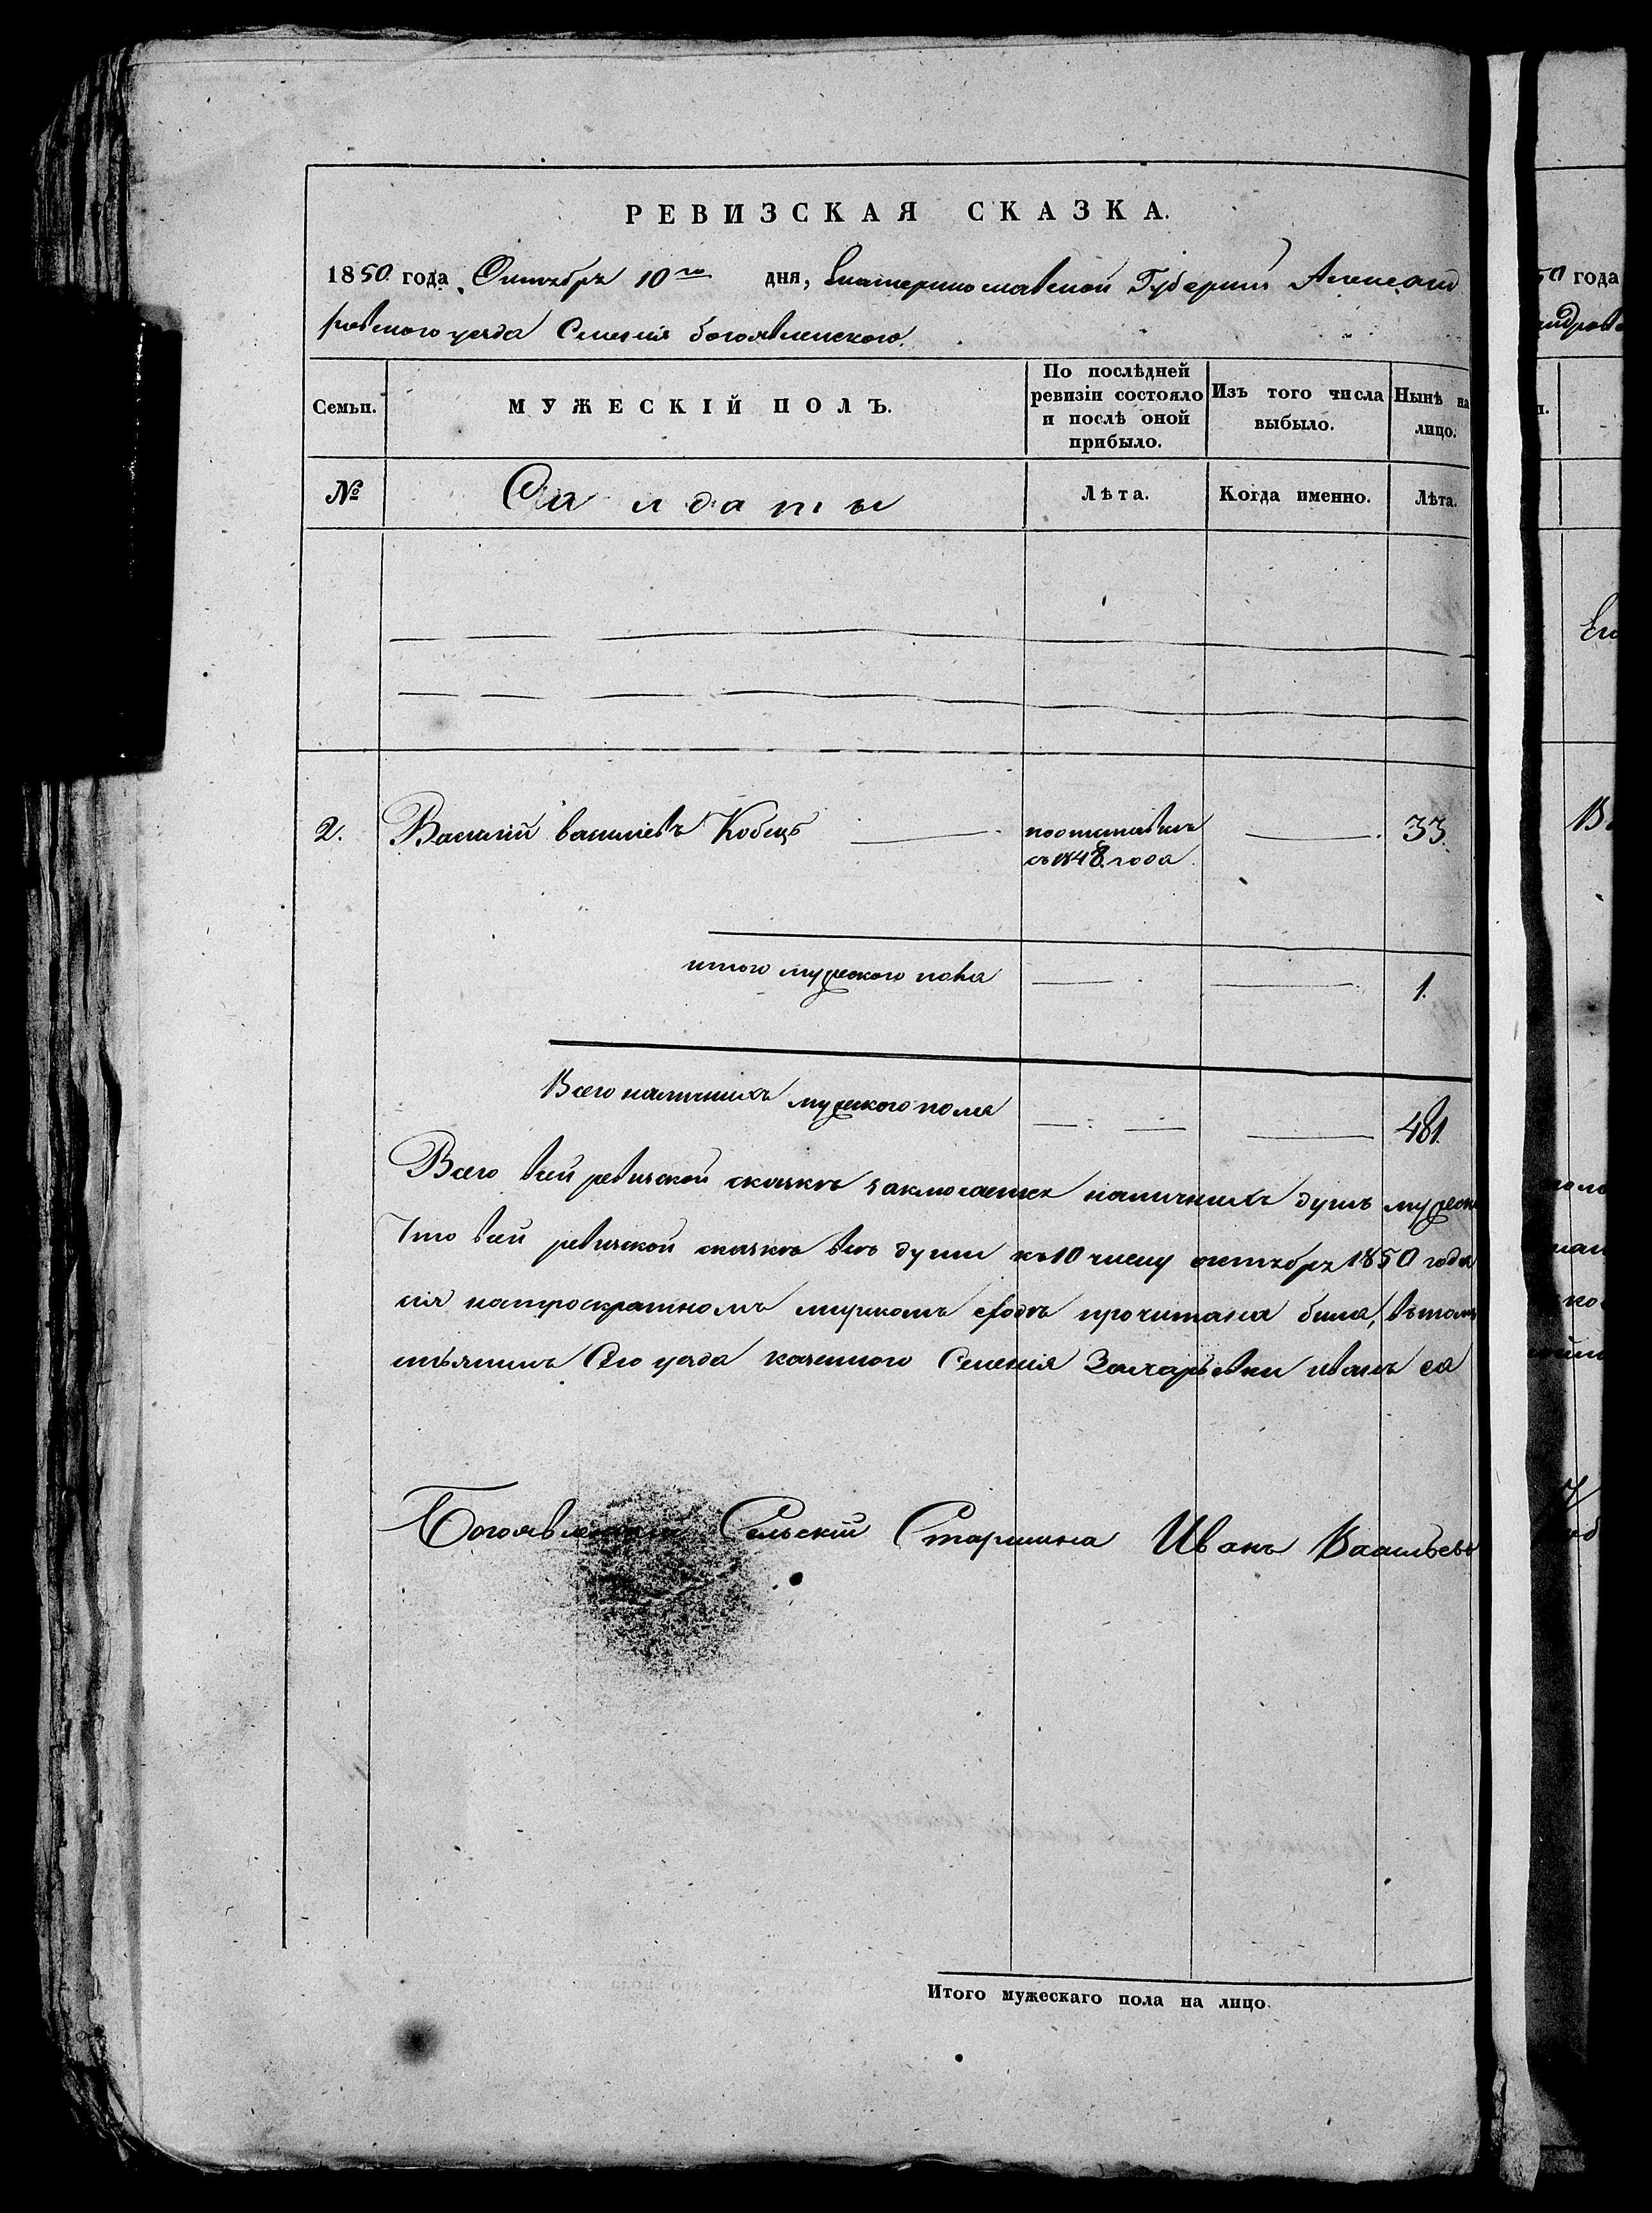 РЕВИЗСКАЯ СКАЗКА.
1850 года Октября 10го дня, Екатеринославской Губернии Александ
ровского уезда Селения богоявленского.
Семьи.
МУЖЕСКІЙ ПОЛЪ.
По послѣдней ревизіи состояло и послѣ оной прибыло.
Изъ того числа выбыло.
Нынѣ на лицо.
№
Салдаты
Лѣта.
Когда именно.
Лѣта.
2. Василій василіевъ Кобецъ 33.
съ 1848 года
итого мужеского пола 1.
Всего наличнихъ мужеского пола 481.
Всего всей ревизской сказкѣ заключается наличнихъ душъ мужеск
Что всей ревизской сказкѣ всѣ души къ 10 числу октября 1850 года
сія натроекратномъ мирскомъ сходѣ прочитана била, въ томъ
Сего уезда казенного Селенія Захарьевки иванъ са
Богоявленскій Сельскій Старшина Иванъ Васильевъ
Итого мужескаго пола на лицо.
50 года